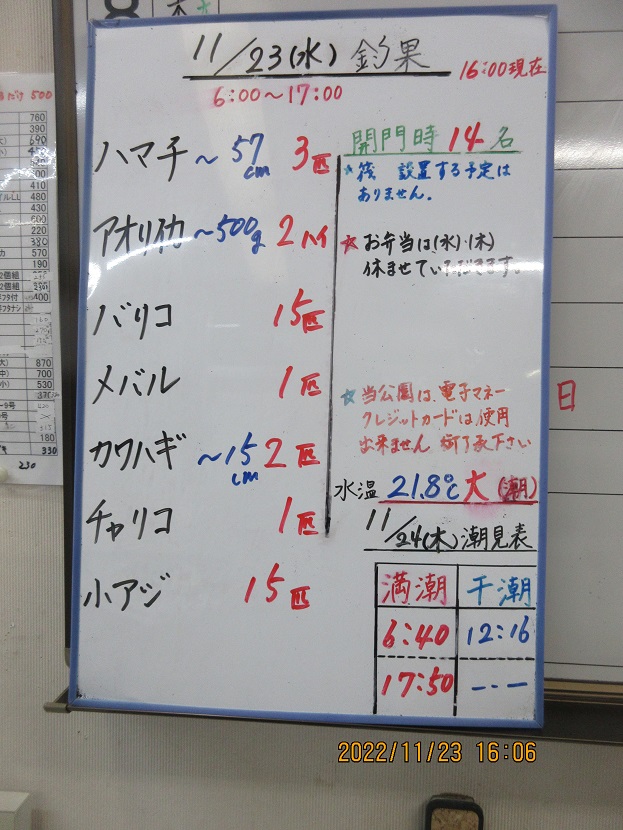 11/23(水) 釣果
16:00現在
6:00～17:00
ハマチ ～57cm 3匹
アオリイカ ～500g 2ハイ
バリコ 15匹
メバル 1匹
カワハギ ～15cm 2匹
チャリコ 1匹
小アジ 15匹
開門時 14名
★筏 設置する予定は
ありません。
★お弁当は(水)・(木)
休ませていただきます。
★当公園は、電子マネー
クレジットカードは使用
出来ません 御了承下さい
水温 21.8℃ 大(潮)
11/24(木)潮見表
満潮 干潮
6:40 12:16
17:50 -.-
日
2022/11/23 16:06
500
760
390
690
480
410
480
430
600
220
380
570
190
2個組
400
870
700
530
180
330
230